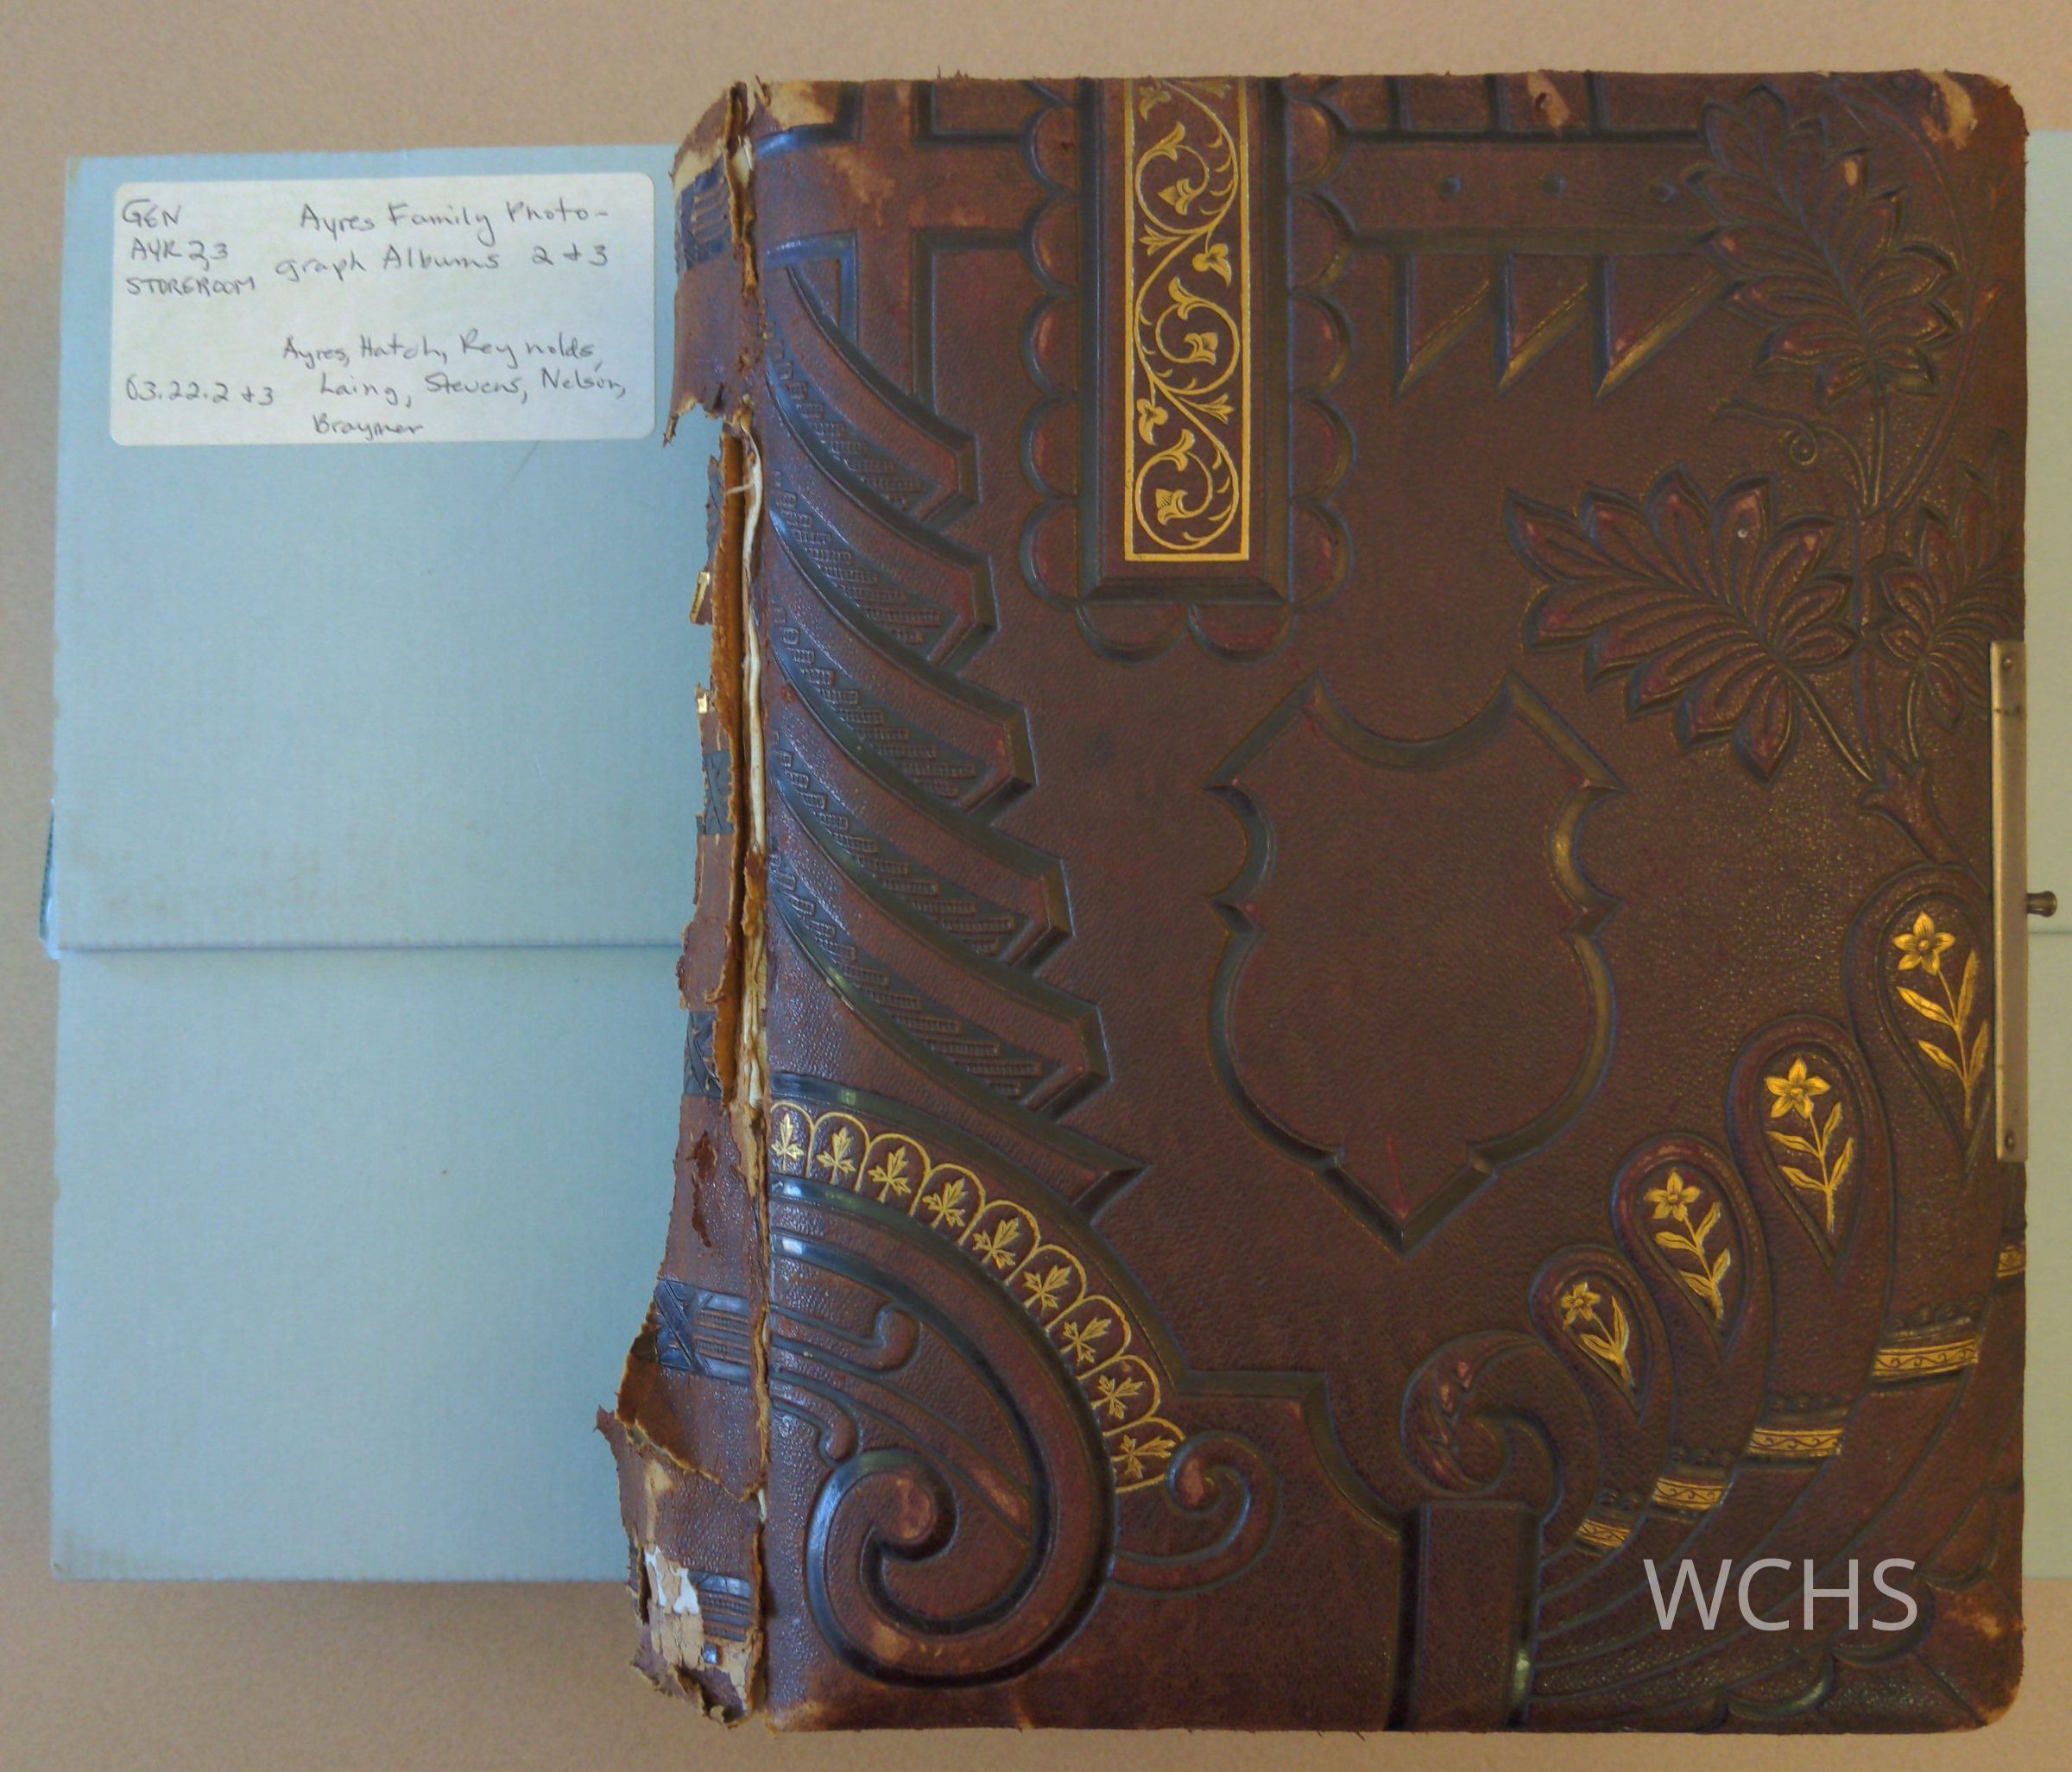 GEN
AYR 2,3
STOREROOM
Ayres Family Photo-
graph Albums 2 + 3
Ayres, Hatch, Reynolds,
03.22.2 + 3 Laing, Stevens, Nelson,
Braymer
WCHS